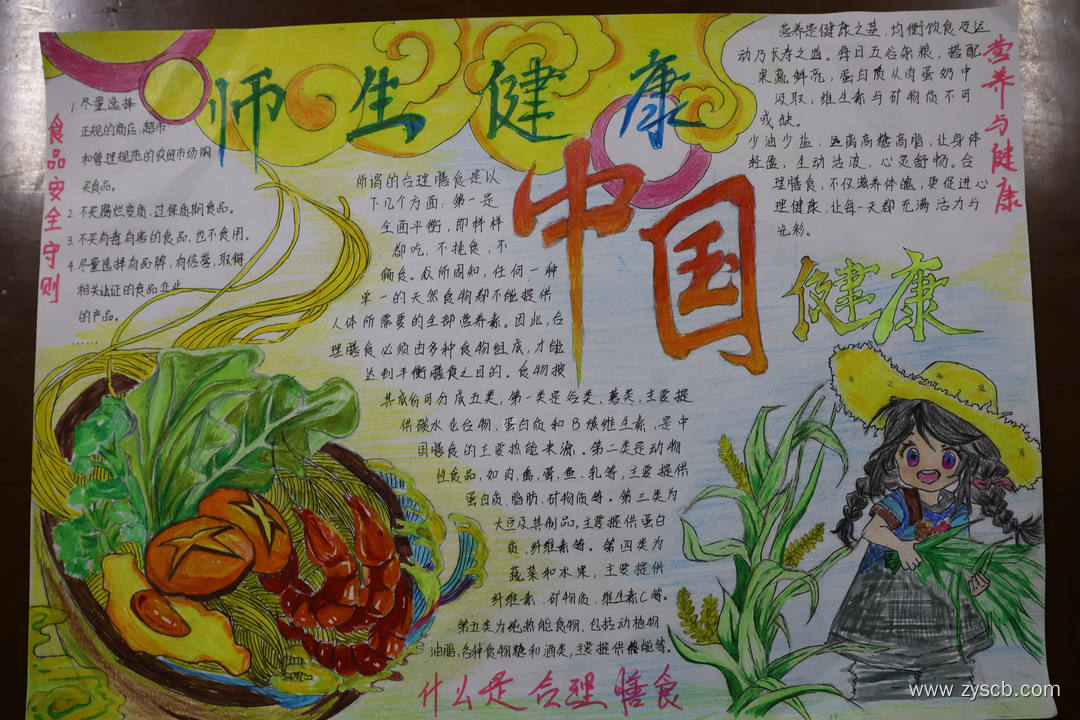 师生健康
中国
健康
食品安全守则
1. 尽量选择
正规的商店、超市
和管理规范的农贸市场购
买食品。
2. 不买腐烂变质、过保质期食品。
3. 不买有毒有害的食品，也不食用。
4. 尽量选择有品牌，有信誉，取得
相关认证的食品企业
的产品。
......
所谓的合理膳食是以
下几个方面：第一是
全面平衡，即样样
都吃，不挑食，不
偏食。众所周知，任何一种
单一的天然食物都不能提供
人体所需要的全部营养素。因此，合
理膳食必须由多种食物组成，才能
达到平衡膳食之目的。食物按
其成份可分成五类，第一类是谷类，薯类，主要提
供碳水化合物，蛋白质和B族维生素，是中
国膳食的主要热能来源。第二类是动物
性食品，如肉、禽、蛋、鱼、乳等，主要提供
蛋白质、脂肪、矿物质等。第三类为
大豆及其制品，主要提供蛋白
质、纤维素等。第四类为
蔬菜和水果，主要提供
纤维素、矿物质、维生素C等。
第五类为纯热能食物，包括动植物
油脂、各种食物糖和酒类，主要提供能等。
什么是合理膳食
营养与健康
营养是健康之基，均衡饮食及运
动乃长寿之道。每日五谷杂粮，搭配
果蔬鲜亮，蛋白质从肉蛋奶中
汲取，维生素与矿物质不可
或缺。
少油少盐，远离高糖高脂，让身体
轻盈，生动活泼，心灵舒畅。合
理膳食，不仅滋养体魄，更促进心
理健康，让每一天都充满活力与
光彩。
www.zyscb.com